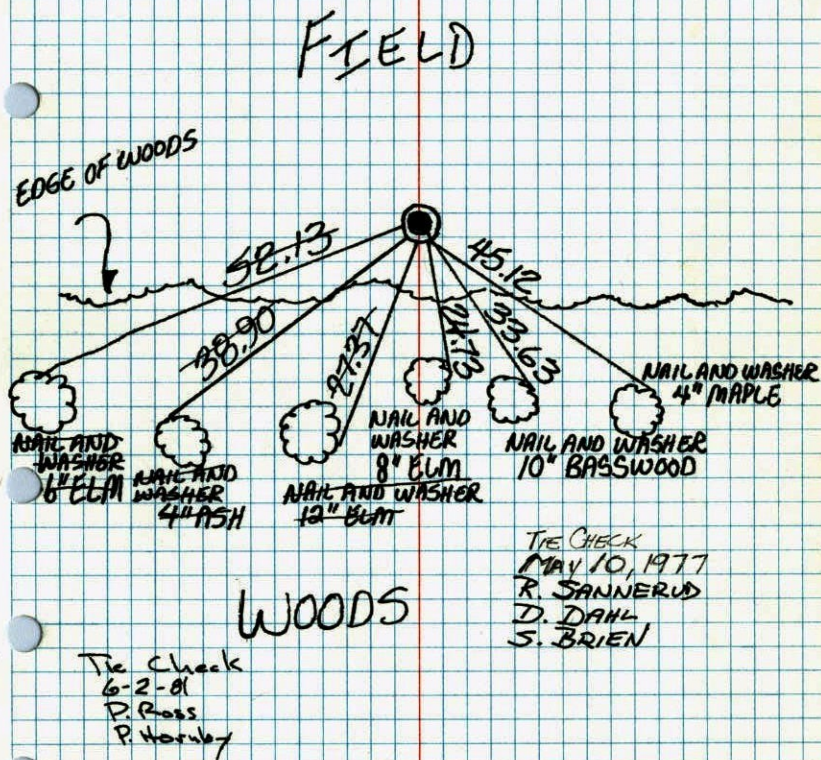 FIELD
EDGE OF WOODS
52.13
38.90
27.37
24.73
33.63
45.12
NAIL AND
WASHER
6" ELM
NAIL AND
WASHER
4" ASH
NAIL AND WASHER
12" ELM
NAIL AND
WASHER
8" ELM
NAIL AND WASHER
10" BASSWOOD
NAIL AND WASHER
4" MAPLE
WOODS
TIE CHECK
MAY 10, 1977
R. SANNERUD
D. DAHL
S. BRIEN
Tie Check
6-2-81
D. Ross
P. Hornby